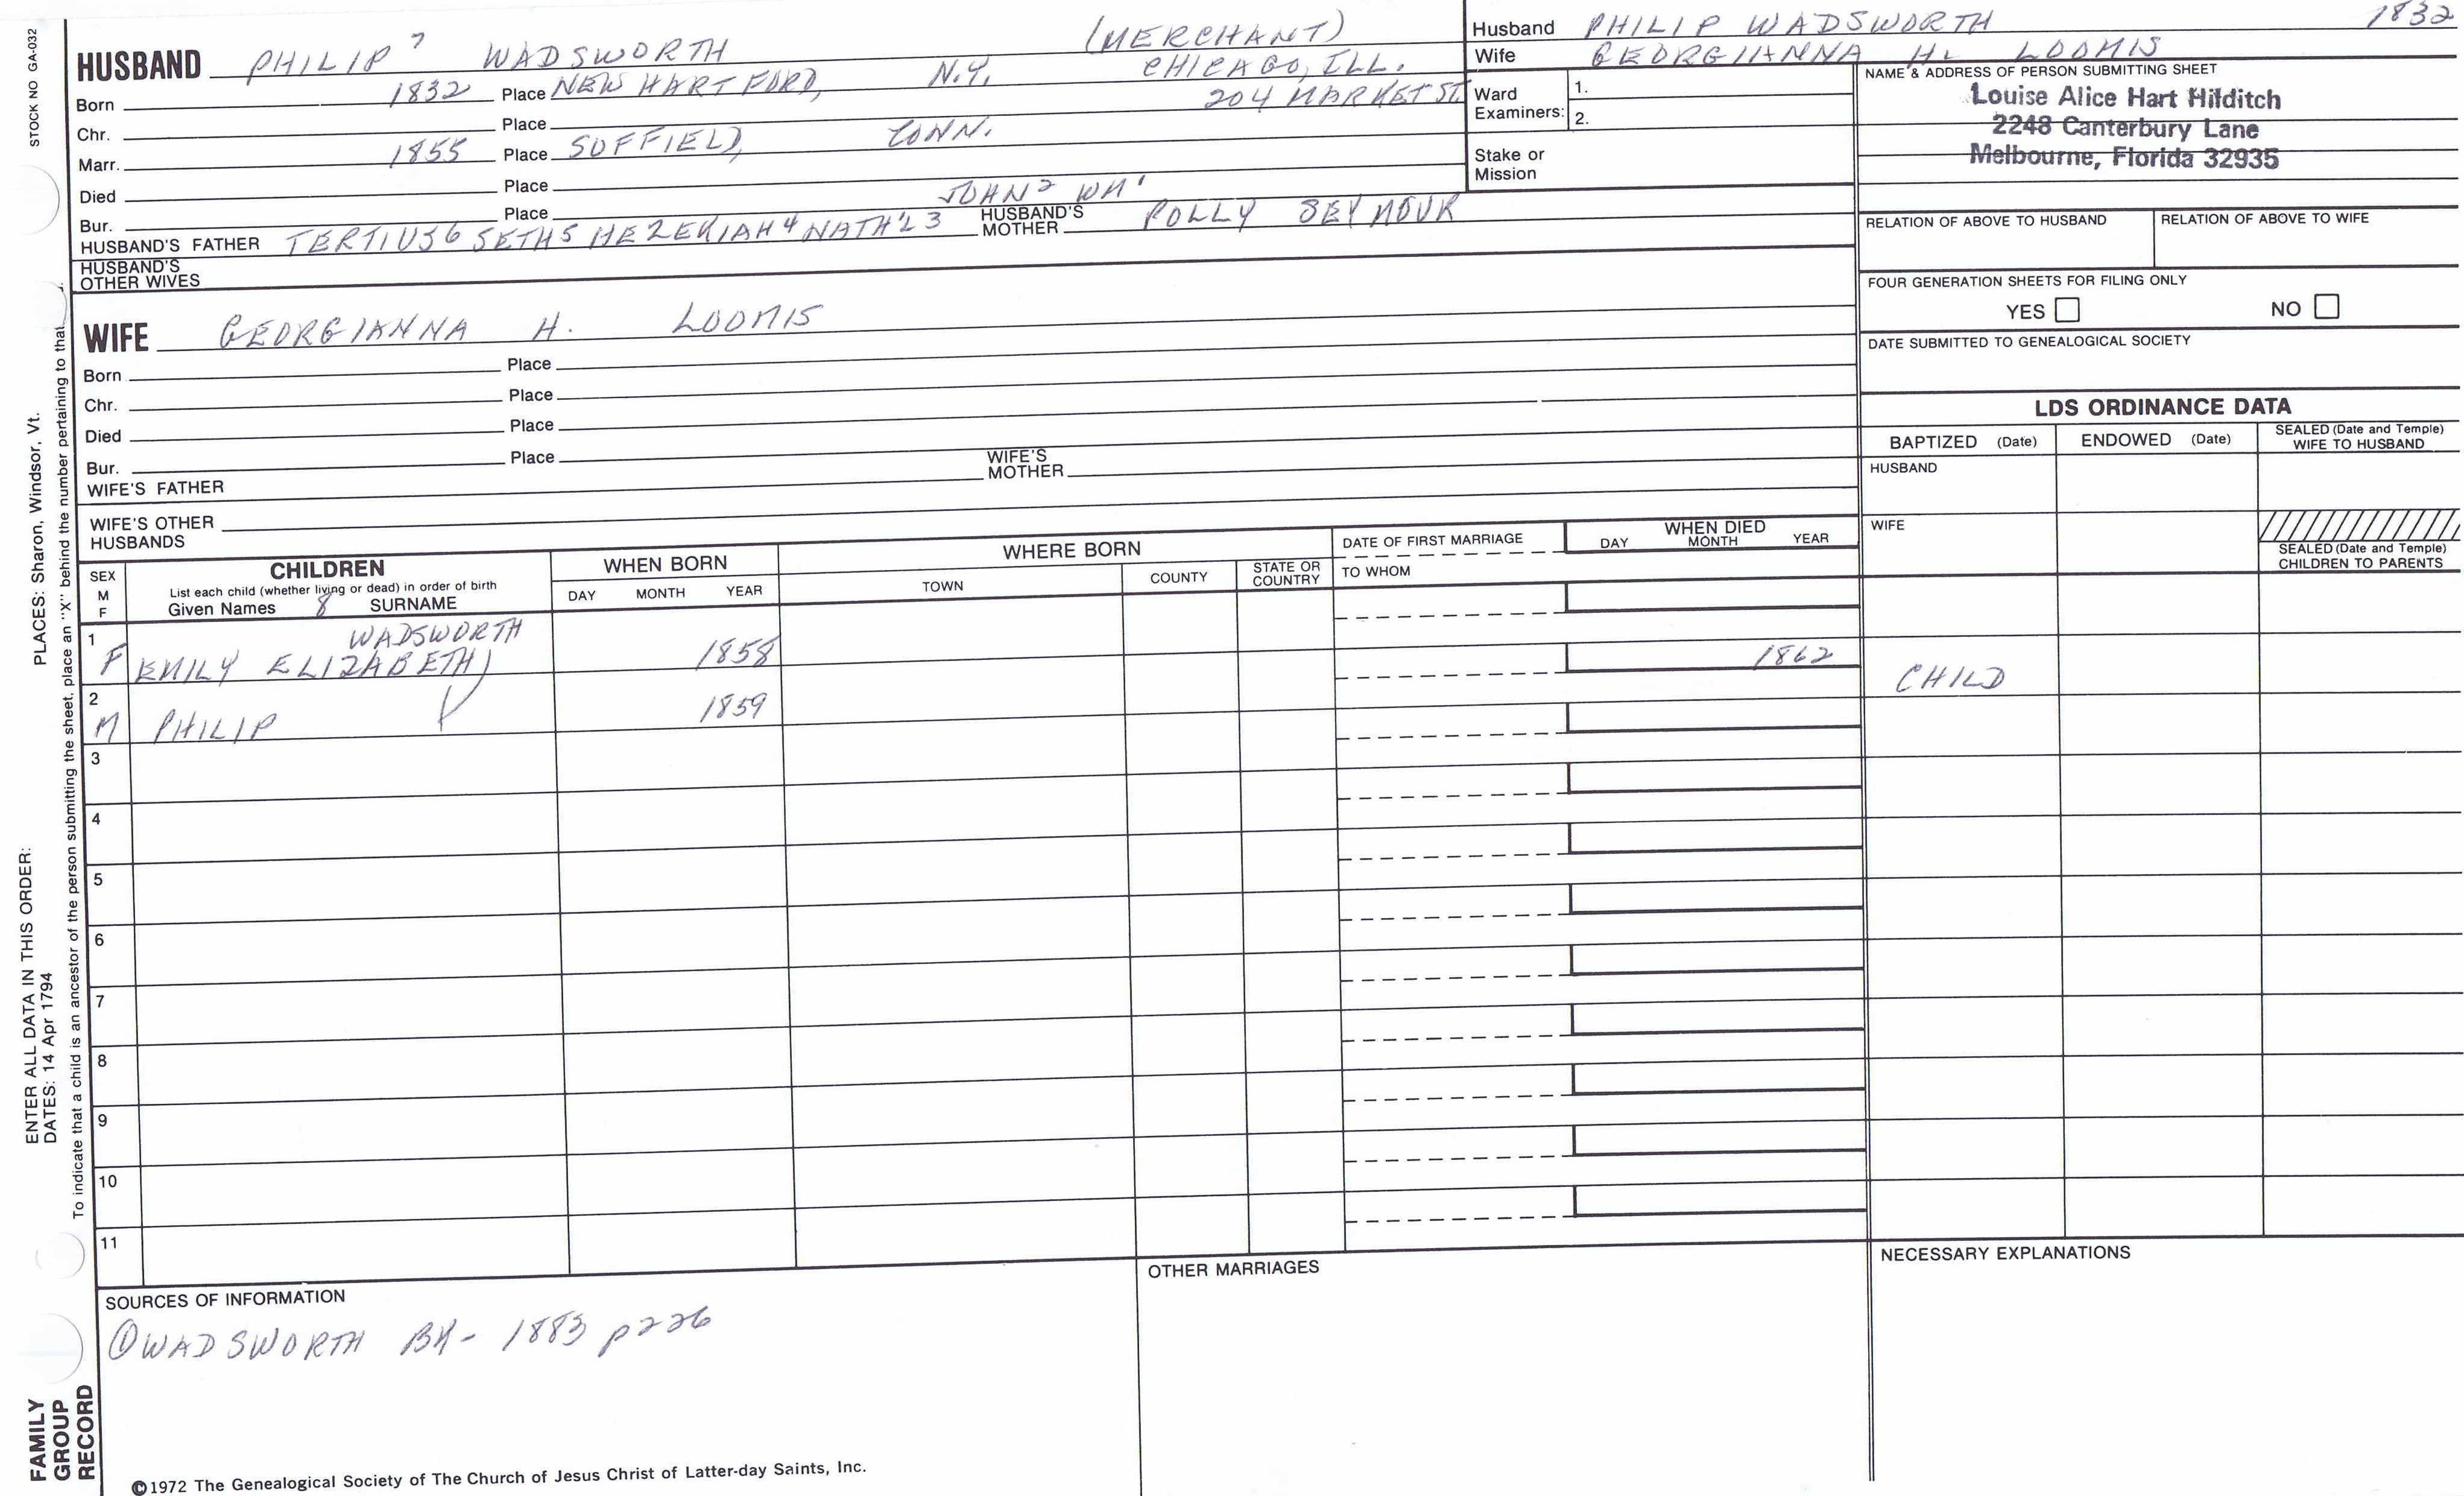 STOCK NO GA-032
HUSBAND PHILIP 7 WADSWORTH (MERCHANT)
Born 1832 Place NEW HARTFORD, N.Y. CHICAGO, ILL.
204 MARKET ST
Chr. Place
Marr. 1855 Place SUFFIELD, CONN.
Died Place
Bur. Place JOHN 2 WM 1
HUSBAND'S FATHER TERTIUS 6 SETH 5 HEZEKIAH 4 NATH'L 3 HUSBAND'S MOTHER POLLY SEYMOUR
HUSBAND'S OTHER WIVES
WIFE GEORGIANNA H. LOOMIS
Born Place
Chr. Place
Died Place
Bur. Place
WIFE'S FATHER WIFE'S MOTHER
WIFE'S OTHER HUSBANDS
Husband PHILIP WADSWORTH 1832
Wife GEORGIANNA H. LOOMIS
Ward Examiners: 1.
2.
Stake or Mission
NAME & ADDRESS OF PERSON SUBMITTING SHEET
Louise Alice Hart Hilditch
2248 Canterbury Lane
Melbourne, Florida 32935
RELATION OF ABOVE TO HUSBAND RELATION OF ABOVE TO WIFE
FOUR GENERATION SHEETS FOR FILING ONLY
YES NO
DATE SUBMITTED TO GENEALOGICAL SOCIETY
LDS ORDINANCE DATA
BAPTIZED (Date) ENDOWED (Date) SEALED (Date and Temple) WIFE TO HUSBAND
HUSBAND
WIFE
SEALED (Date and Temple) CHILDREN TO PARENTS
SEX M F
CHILDREN
List each child (whether living or dead) in order of birth
Given Names 8 SURNAME
WHEN BORN
DAY MONTH YEAR
WHERE BORN
TOWN COUNTY STATE OR COUNTRY
DATE OF FIRST MARRIAGE
TO WHOM
WHEN DIED
DAY MONTH YEAR
1 WADSWORTH
F EMILY ELIZABETH 1858 1862 CHILD
2
M PHILIP 1859
3
4
5
6
7
8
9
10
11
SOURCES OF INFORMATION
① WADSWORTH BK- 1883 p226
OTHER MARRIAGES
NECESSARY EXPLANATIONS
©1972 The Genealogical Society of The Church of Jesus Christ of Latter-day Saints, Inc.
ENTER ALL DATA IN THIS ORDER:
DATES: 14 Apr 1794
PLACES: Sharon, Windsor, Vt.
To indicate that a child is an ancestor of the person submitting the sheet, place an "X" behind the number pertaining to that
FAMILY
GROUP
RECORD